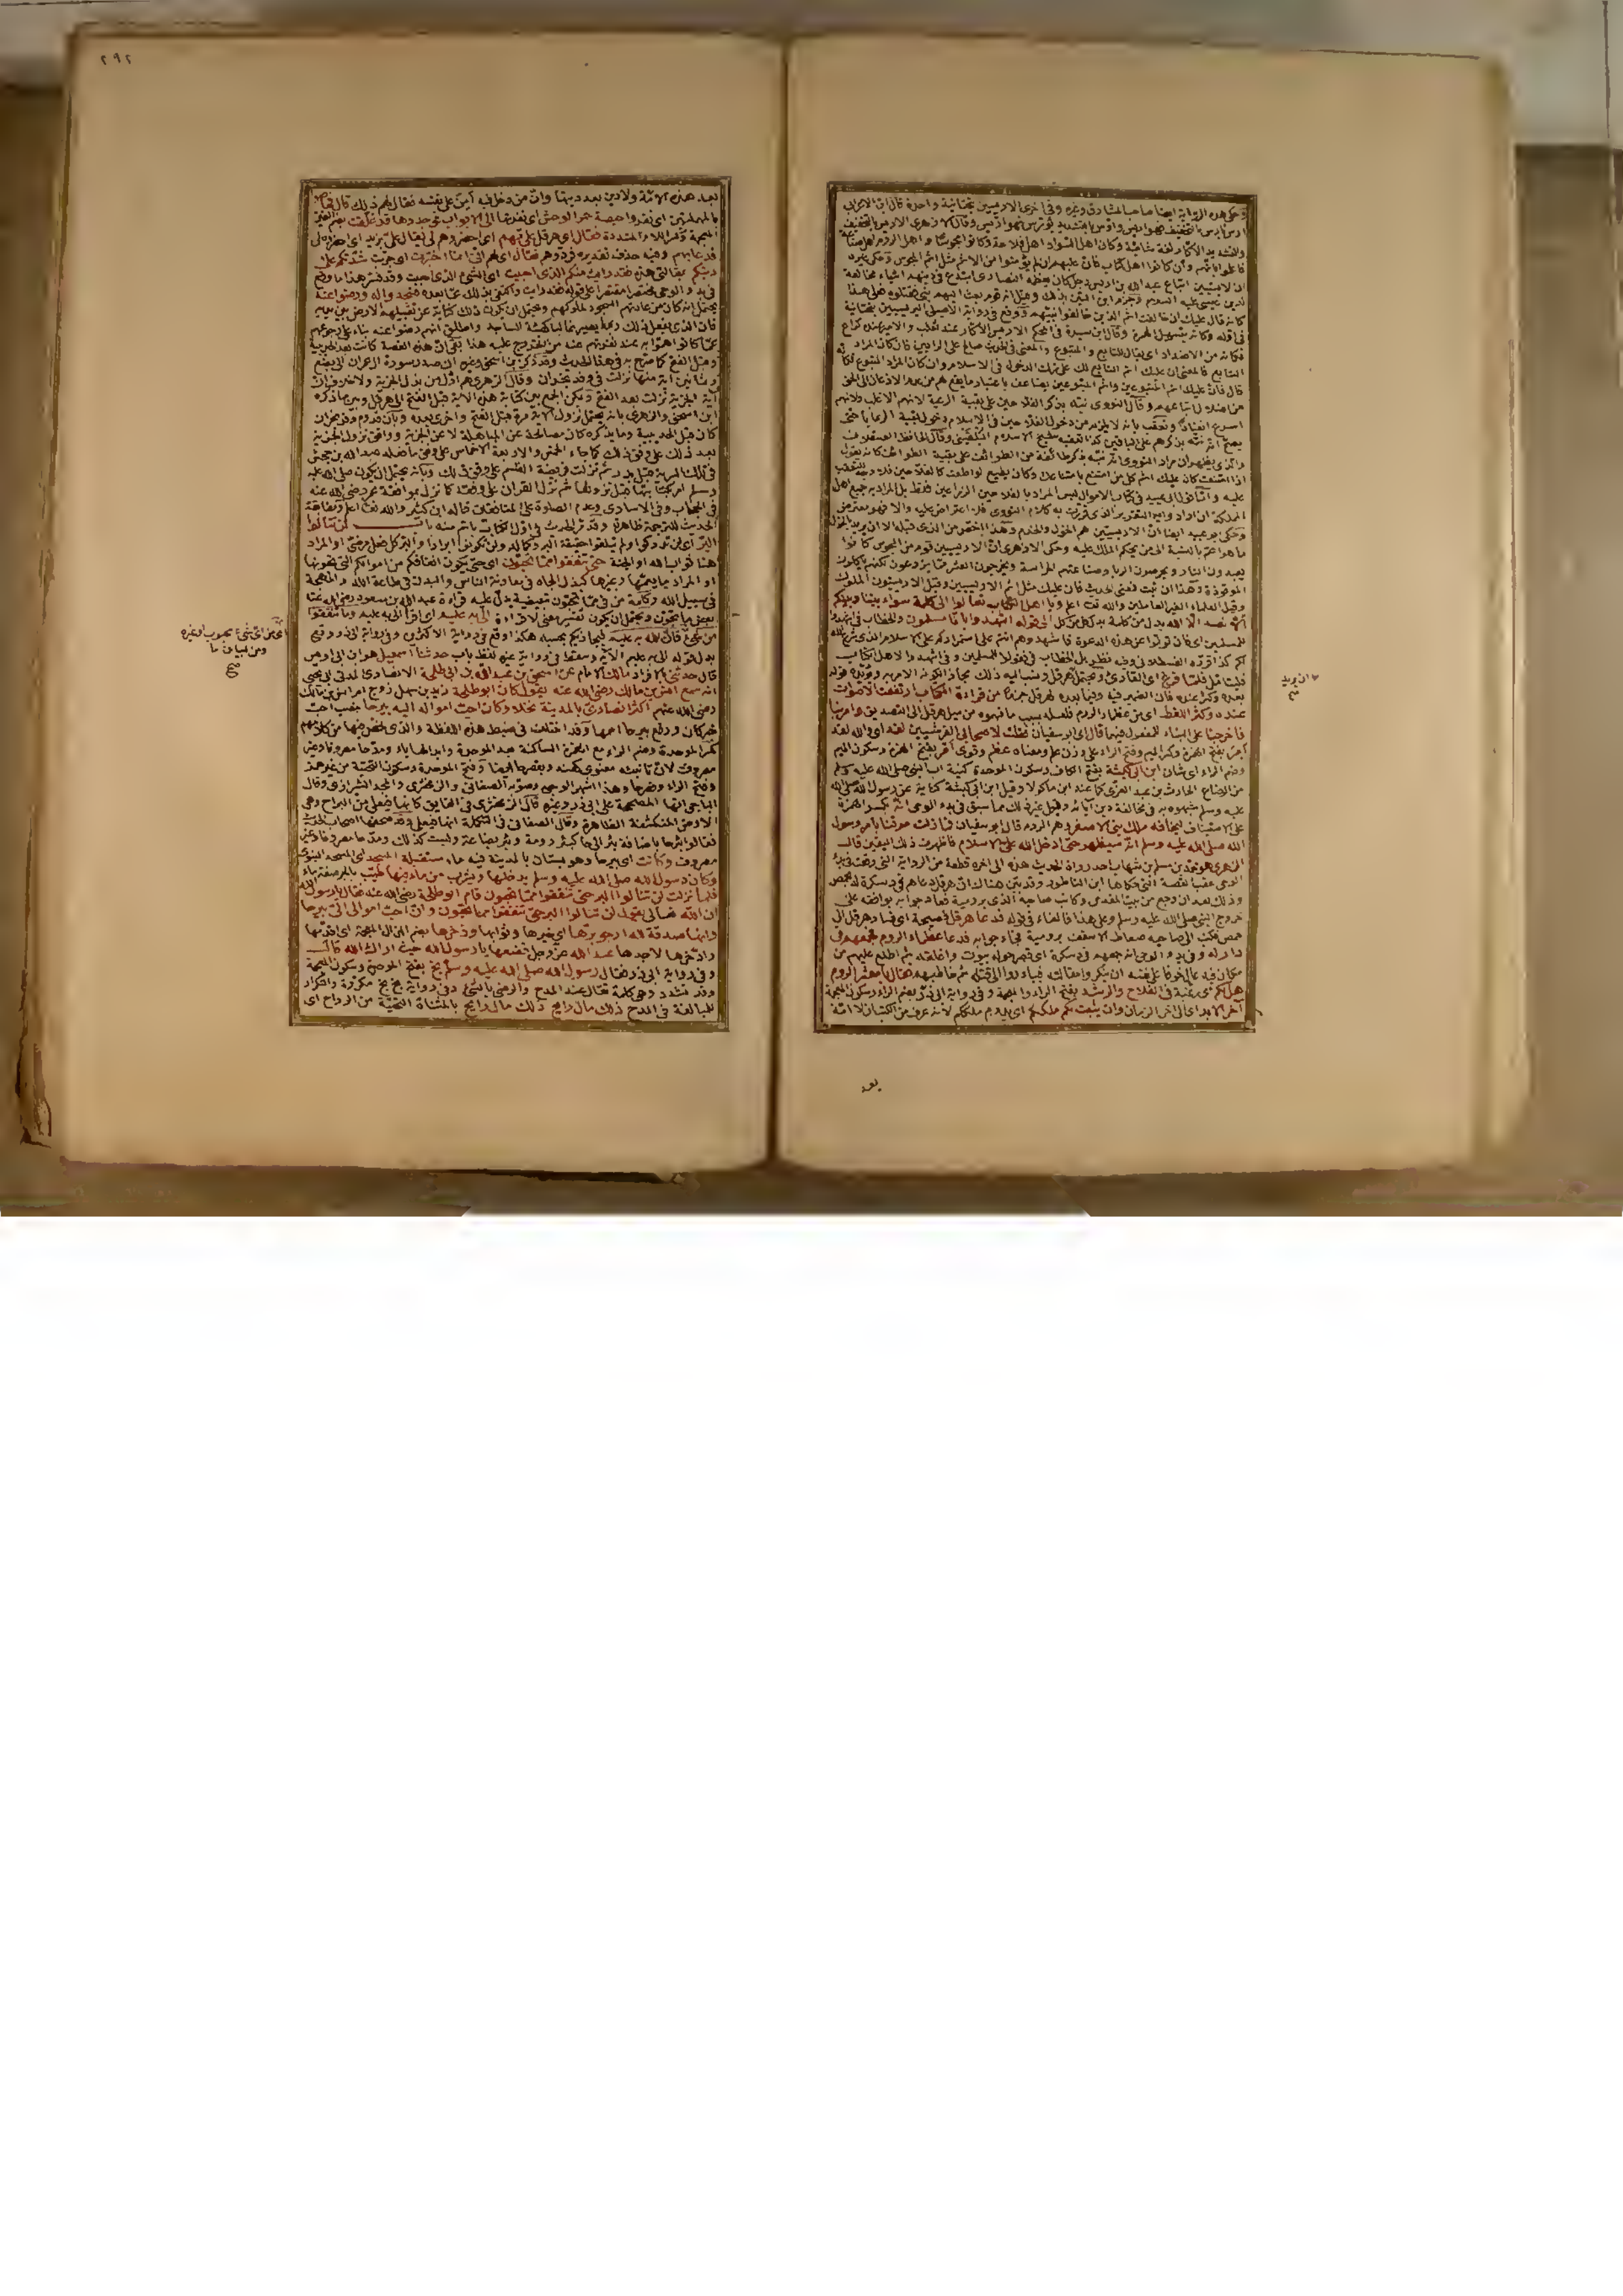 وحكى هذه الرواية ايضا صاحب المشارق وغيره وفي اخرى الاريسيين بتحتانية واحدة قال ابن الاعرابي
والتشديد الاكار لغة شامية وكان اهل السواد اهل فلاحة وكانوا مجوسا واهل الروم اهل صناعة
فاعلموا بانهم وان كانوا اهل كتاب فان عليهم ان لم يؤمنوا من الاثم مثل اثم المجوس وحكى غيره
ان الاريسيين اتباع عبد الله بن اريس رجل كان يعظمه النصارى ابتدع في دينهم اشياء مخالفة
لدين عيسى عليه السلام
كانه قال عليك ان خالفت اثم الذين خالفوا نبيهم ووقع في رواية الاصيلي اليريسيين بتحتانية
فكانه من الاضداد اى يقال للتابع والمتبوع والمعنى في الحديث صالح على الرايين فان كان المراد
التابع فالمعنى ان عليك اثم التابع لك على ترك الدخول في الاسلام وان كان المراد المتبوع فكانه
قال فان عليك اثم المتبوعين واثم المتبوعين يضاعف باعتبار ما يقع لهم من عدم الاذعان الى الحق
من اضلال اتباعهم وقال النووى نبه بذكر الفلاحين على بقية الرعية لانهم الاغلب ولانهم
اسرع انقيادا وتعقب بانه لا يلزم من دخول الفلاحين في الاسلام دخول بقية الرعايا حتى
يصح انه نبه بذكرهم على الباقين كذا تعقبه شيخ الاسلام البلقيني وقال الحافظ العسقلاني
والذى يظهر ان مراد النووى انه نبه بذكر طائفة من الطوائف على بقية الطوائف كانه يقول
اذا امتنعت كان عليك اثم كل من امتنع بامتناعك وكان يطيع لو اطعت كالفلاحين فلا وجه للتعقب
عليه و
المملكة ان اراد به التقرير الذى قررت به كلام النووى فلا اعتراض عليه والا فهو معترض
وحكى ابو عبيد ايضا ان الاريسيين هم الخول والخدم وهذا اخص من الذى قبله الا ان يريد بالخول
ما هو اعم بالنسبة الى من يحكم الملك عليه وحكى الازهرى ان الاريسيين قوم من المجوس كانوا
يعبدون النار ويحرمون الزنا وصناعتهم الحراسة ويخرجون العشر مما يزرعون لكنهم ياكلون
الموقوذة وهذا ان ثبت فمعنى الحديث فان عليك مثل اثم الاريسيين وقيل الاريسيون الملوك
وقيل العلماء
ان لا نعبد الا الله بدل من كلمة بدل كل من كل الى قوله اشهدوا بانا مسلمون والخطاب في اشهدوا
للمسلمين اى فان تولوا عن هذه الدعوة فاشهدوهم انتم على استمراركم على الاسلام الذى شرعه الله
لكم كذا قرره القسطلاني وفيه نظر بل الخطاب في فقولوا للمسلمين وفي اشهدوا لاهل الكتاب
فاخرجنا على البناء للمفعول فيهما قال اى ابو سفيان فقلت لاصحابي القرشيين لقد اى والله لقد
امر بفتح الهمزة وكسر الميم وفتح الراء على وزن علم ومعناه عظم وقوى امر بفتح الهمزة وسكون الميم
وضم الراء اى شان ابن ابي كبشة بفتح الكاف وسكون الموحدة كنية ابى النبي صلى الله عليه وسلم
من الرضاع الحارث بن عبد العزى كما عند ابن ماكولا وقيل ابن ابي كبشة كناية عن رسول الله صلى الله
عليه وسلم شبهوه به في مخالفة دين آبائه وقيل غير ذلك مما سبق في بدء الوحى انه بكسر الهمزة
على الاستيناف ليخافه ملك بني الاصفر وهم الروم قال ابو سفيان فما زلت موقنا بامر رسول
الله صلى الله عليه وسلم انه سيظهر حتى ادخل الله على الاسلام فاظهرت ذلك اليقين قال
الزهرى هو محمد بن مسلم بن شهاب احد رواة الحديث هذه الى اخره قطعة من الرواية التي وقعت في بدء
الوحى عقب القصة التي حكاها ابن الناطور وقد بين هناك ان هرقل دعاهم في دسكرة له بحمص
وذلك بعد ان رجع من بيت المقدس وكاتب صاحبه الذى برومية فجاءه جوابه يوافقه على
خروج النبي صلى الله عليه وسلم وعلى هذا فالفاء في قوله فدعا هرقل فصيحة اى فسار هرقل الى
حمص فكتب الى صاحبه ضغاطر الاسقف برومية فجاءه جوابه فدعا عظماء الروم فجمعهم في
دار له وفي بدء الوحى انه جمعهم في دسكرة اى قصر حوله بيوت واغلقه ثم اطلع عليهم من
مكان فيه عال خوفا على نفسه ان ينكروا مقالته فيبادروا الى قتله ثم خاطبهم فقال يا معشر الروم
هل لكم اى رغبة في الفلاح والرشد بفتح الراء والمعجمة وفي رواية ابي ذر بضم الراء وسكون المعجمة
آخر الابد اى الى اخر الزمان وان يثبت لكم ملككم اى يدوم ملككم لانه عرف من الكتب ان لا امة
بعد
ان يريد
صح
٢٩٢
بعد هذه الامة ولا دين بعد دينها وان من دخل فيه أمن على نفسه فقال لهم ذلك قال فحاصوا
بالمهملتين اى نفروا حيصة حمر الوحش اى نفرتها الى الابواب فوجدوها قد غلقت بضم الغين
المعجمة وكسر اللام المشددة فقال اى هرقل علي بهم اى احضروهم لي يقال علي بزيد اى احضروه لي
فدعا بهم وفيه حذف تقديره فردوهم فقال اى لهم اني انما اختبرت اى جربت شدتكم على
دينكم بمقالتي هذه فقد رايت منكم الذى احببت اى الشىء الذى احببت وقد فسر هذا ما وقع
في بدء الوحى مختصرا مقتصرا على قوله فقد رايت واكتفى بذلك عما بعده فسجدوا له ورضوا عنه
يحتمل انه كان من عادتهم السجود لملوكهم ويحتمل ان يكون ذلك كناية عن تقبيلهم الارض بين يديه
فان الذى يفعل ذلك ربما يصير غالبا كهيئة الساجد واطلق انهم رضوا عنه بناء على رجوعهم
عما كانوا هموا به عند تفرقهم عنه من الخروج عليه هذا بقي ان هذه القصة كانت بعد الحديبية
وقبل الفتح كما صرح به في هذا الحديث وقد ذكر ابن اسحق وغيره ان صدر سورة آل عمران الى بضع
وثمانين آية منها نزلت في وفد نجران وقال الزهرى هم اول من بذل الجزية ولا خلاف ان
آية الجزية نزلت بعد الفتح ويمكن الجمع بين كتابة هذه الآية قبل الفتح الى هرقل وبين ما ذكره
ابن اسحق والزهرى بانه يحتمل نزول الآية مرة قبل الفتح واخرى بعده وبان قدوم وفد نجران
كان قبل الحديبية وما بذلوه كان مصالحة عن المباهلة لا عن الجزية ووافق نزول الجزية
بعد ذلك على وفق ذلك كما جاء الخمس والاربعة الاخماس على وفق ما فعله عبد الله بن جحش
في تلك السرية قبل بدر ثم نزلت فريضة القسم على وفق ذلك وبانه يحتمل ان يكون صلى الله عليه
وسلم امر بكتابتها قبل نزولها ثم نزل القرآن على وفقه كما نزل بموافقة عمر رضى الله عنه
في الحجاب وفي الاسارى وعدم الصلوة على المنافقين قاله ابن كثير والله تعالى اعلم ومطابقة
الحديث للترجمة ظاهرة وقد مر الحديث في اول الكتاب باتم منه باب لن تنالوا
البر اى لن تدركوا ولم تبلغوا حقيقة البر وكماله ولن تكونوا ابرارا والبر كل فعل مرضي او المراد
هنا ثواب الله او الجنة حتى تنفقوا مما تحبون اى حتى يكون انفاقكم من اموالكم التي تحبونها
او المراد ما يعمها وغيرها كبذل الجاه في معاونة الناس والبدن في طاعة الله والمهجة
في سبيل الله وكلمة من في مما تحبون تبعيضية يدل عليه قراءة عبد الله بن مسعود رضى الله عنه
بعض ما تحبون ويحتمل ان يكون تفسير معنى لا قراءة الى به عليم اى اقرأ الى به عليم وما تنفقوا
من شىء فان الله به عليم فيجازيكم بحسبه هكذا وقع في رواية الاكثرين وفي رواية ابي ذر وقع
بدل قوله الى به عليم الآية وسقط في رواية غيره لفظ باب حدثنا اسمعيل هو ابن ابي اويس
قال حدثني بالافراد مالك الامام عن اسحق بن عبد الله بن ابي طلحة الانصارى المدني ابي يحيى
انه سمع انس بن مالك رضى الله عنه يقول كان ابو طلحة زيد بن سهل زوج ام انس بن مالك
رضى الله عنهم اكثر انصارى بالمدينة نخلا وكان احب امواله اليه بيرحا بنصب احب
خبر كان ورفع بيرحا اسمها وقد اختلف في ضبط هذه اللفظة والذى تلخص منها من كلامهم
كسر الموحدة وضم الراء مع الهمزة الساكنة بعد الموحدة وابدالها ياء ومد حا مصروفا وغير
مصروف لان تانيثه معنوى كهند وبقصرها ايضا وفتح الموحدة وسكون التحتية من غير همز
وفتح الراء وضمها وهذا اشهر الوجوه وصوبه الصغاني والزمخشرى والمجد الشيرازى وقال
الباجي انها المصححة على ابي ذر وغيره قال الزمخشرى في الفائق كانها فيعل من البراح وهى
الارض المنكشفة الظاهرة وقال الصغاني في التكملة انها فيعلى وقد صحفها اصحاب الحديث
فقالوا بئر حا باضافة بئر الى حا كبئر رومة وبئر بضاعة وليست كذلك ومد حا مصروفا وغير
مصروف وكانت اى بيرحا وهو بستان بالمدينة فيه ماء مستقبلة المسجد اى المسجد النبوى
وكان رسول الله صلى الله عليه وسلم يدخلها ويشرب من ماء فيها طيب بالجر صفة ماء
فلما نزلت لن تنالوا البر حتى تنفقوا مما تحبون قام ابو طلحة رضى الله عنه فقال يا رسول الله
ان الله تعالى يقول لن تنالوا البر حتى تنفقوا مما تحبون وان احب اموالى الي بيرحا
وانها صدقة لله ارجو برها اى خيرها وثوابها وذخرها بضم الذال المعجمة اى اقدمها
وادخرها لاجدها عند الله عز وجل فضعها يا رسول الله حيث اراك الله قال
وفي رواية ابي ذر فقال رسول الله صلى الله عليه وسلم بخ بفتح الموحدة وسكون المعجمة
وقد تشدد وهى كلمة تقال عند المدح والرضى بالشىء وفي رواية بخ بخ مكررة والتكرار
للمبالغة في المدح ذلك مال رايح ذلك مال رايح بالمثناة التحتية من الرواح اى
اى من اى شىء محبوب او غيره
ومن لبيان ما
صح